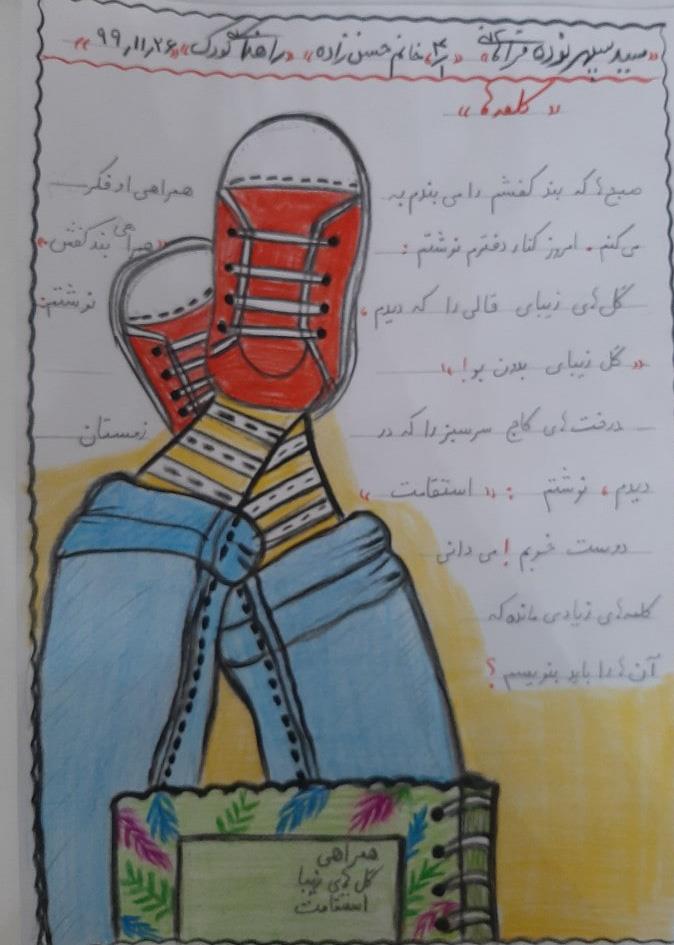 «سید سپهر نوده فراهانی» «۴/۱» «خانم حسن زاده» «راهنمای کودک» «۹۹,۱۱,۲۶»
«کلمه‌ها»
صبح‌ها که بند کفشم را می بندم به همراهی او فکر
می‌کنم. امروز کنار دفترم نوشتم: «همراهی بند کفش»
گل‌های زیبای قالی را که دیدم، نوشتم:
«گل زیبای بدون بو!»
درخت‌های کاج سرسبز را که در زمستان
دیدم، نوشتم: «استقامت»
دوست خوبم! می دانی
کلمه‌های زیادی مانده که
آن‌ها را باید بنویسم؟
همراهی
گل‌های زیبا
استقامت